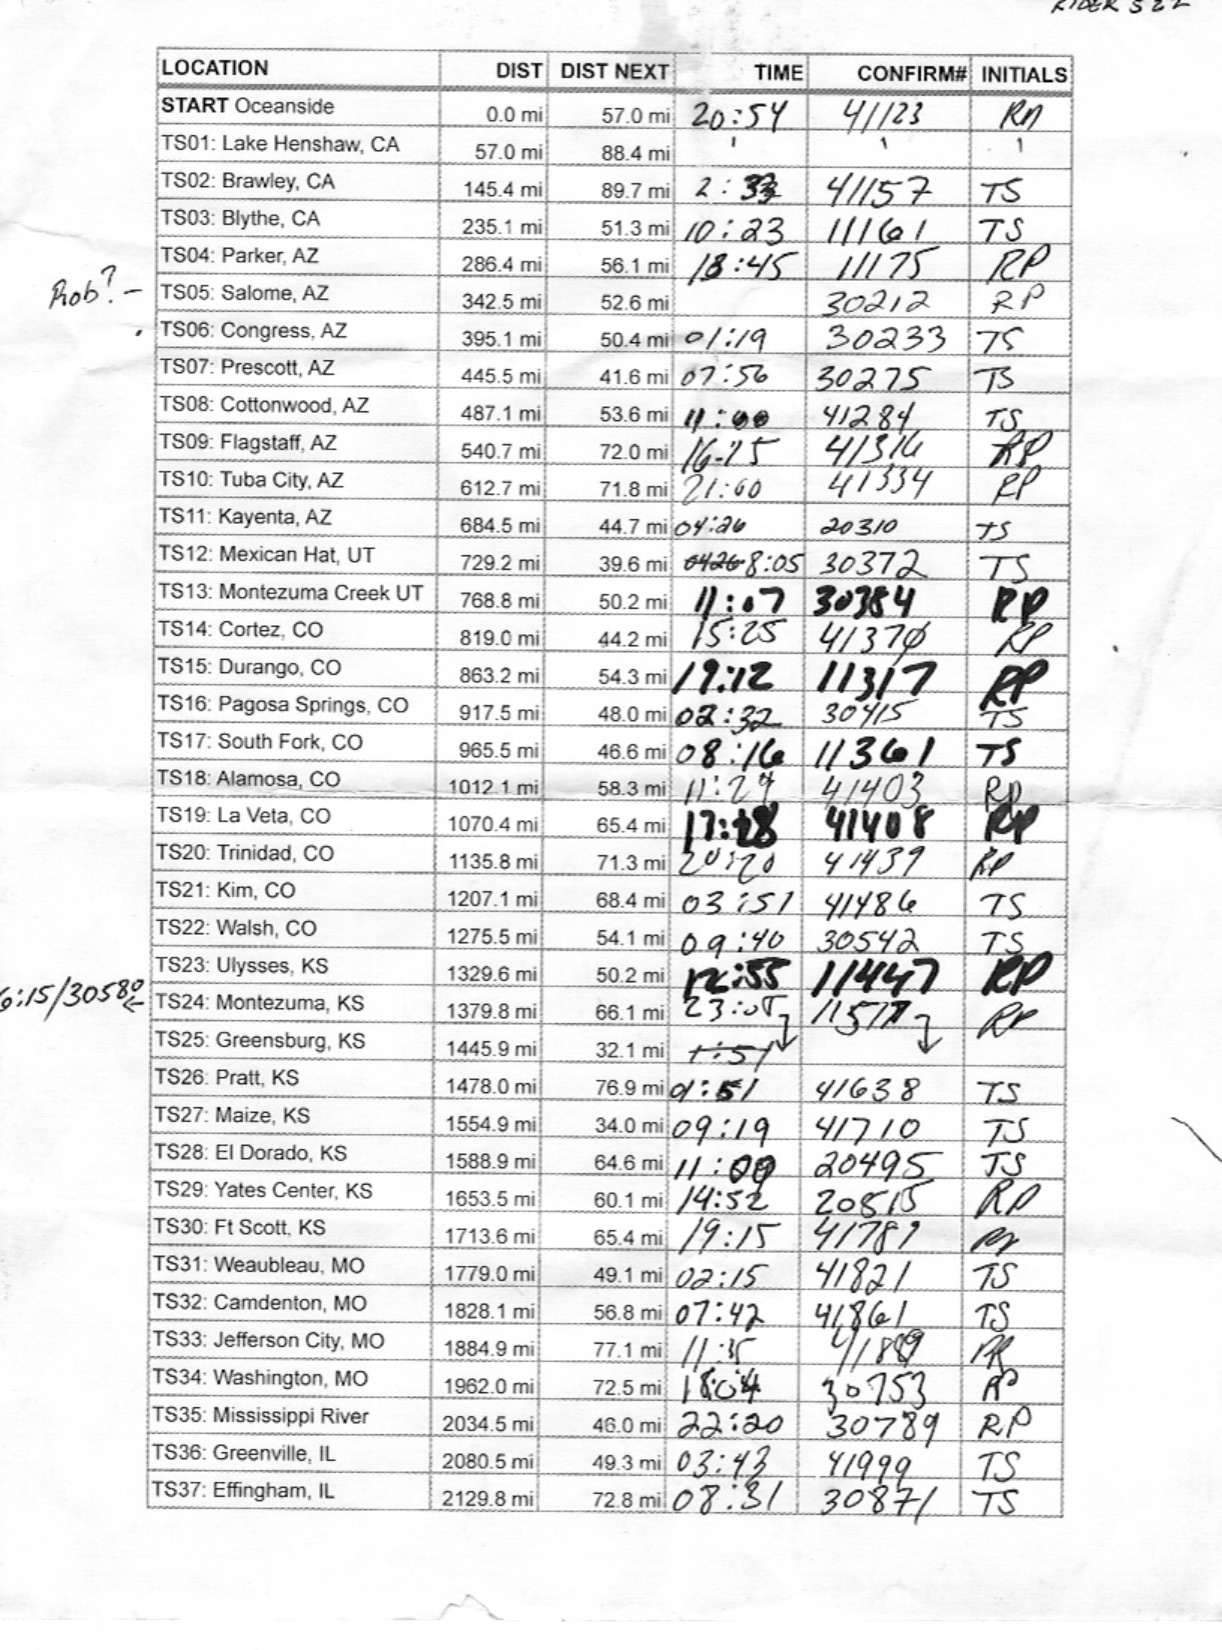 RIDER 522
LOCATION DIST DIST NEXT TIME CONFIRM# INITIALS
START Oceanside 0.0 mi 57.0 mi 20:54 41123
TS01: Lake Henshaw, CA 57.0 mi 88.4 mi
TS02: Brawley, CA 145.4 mi 89.7 mi 2:33 41157 TS
TS03: Blythe, CA 235.1 mi 51.3 mi 10:23 11161 TS
TS04: Parker, AZ 286.4 mi 56.1 mi 18:45 11175 RP
Rob? - TS05: Salome, AZ 342.5 mi 52.6 mi 30212 RP
TS06: Congress, AZ 395.1 mi 50.4 mi 01:19 30233 TS
TS07: Prescott, AZ 445.5 mi 41.6 mi 07:56 30275 TS
TS08: Cottonwood, AZ 487.1 mi 53.6 mi 11:00 41284 TS
TS09: Flagstaff, AZ 540.7 mi 72.0 mi 41316 RP
TS10: Tuba City, AZ 612.7 mi 71.8 mi 21:00 41334 RP
TS11: Kayenta, AZ 684.5 mi 44.7 mi 04:26 20310 TS
TS12: Mexican Hat, UT 729.2 mi 39.6 mi 0426 8:05 30372 TS
TS13: Montezuma Creek UT 768.8 mi 50.2 mi 11:07 30384 RP
TS14: Cortez, CO 819.0 mi 44.2 mi 15:25 41370 RP
TS15: Durango, CO 863.2 mi 54.3 mi 19:12 11317 RP
TS16: Pagosa Springs, CO 917.5 mi 48.0 mi 02:32 30415 TS
TS17: South Fork, CO 965.5 mi 46.6 mi 08:16 11361 TS
TS18: Alamosa, CO 1012.1 mi 58.3 mi 11:29 41403 RP
TS19: La Veta, CO 1070.4 mi 65.4 mi 17:28 41408 RP
TS20: Trinidad, CO 1135.8 mi 71.3 mi 20:20 41439 RP
TS21: Kim, CO 1207.1 mi 68.4 mi 03:51 41486 TS
TS22: Walsh, CO 1275.5 mi 54.1 mi 09:40 30542 TS
TS23: Ulysses, KS 1329.6 mi 50.2 mi 12:55 11447 RP
6:15/30580 TS24: Montezuma, KS 1379.8 mi 66.1 mi 23:05 11517 RP
TS25: Greensburg, KS 1445.9 mi 32.1 mi 1:51
TS26: Pratt, KS 1478.0 mi 76.9 mi 1:51 41638 TS
TS27: Maize, KS 1554.9 mi 34.0 mi 09:19 41710 TS
TS28: El Dorado, KS 1588.9 mi 64.6 mi 11:09 20495 TS
TS29: Yates Center, KS 1653.5 mi 60.1 mi 14:52 20515 RP
TS30: Ft Scott, KS 1713.6 mi 65.4 mi 19:15 41781
TS31: Weaubleau, MO 1779.0 mi 49.1 mi 02:15 41821 TS
TS32: Camdenton, MO 1828.1 mi 56.8 mi 07:42 41861 TS
TS33: Jefferson City, MO 1884.9 mi 77.1 mi 11:35 41889
TS34: Washington, MO 1962.0 mi 72.5 mi 18:04 30753 RP
TS35: Mississippi River 2034.5 mi 46.0 mi 22:20 30789 RP
TS36: Greenville, IL 2080.5 mi 49.3 mi 03:43 41999 TS
TS37: Effingham, IL 2129.8 mi 72.8 mi 08:31 30871 TS